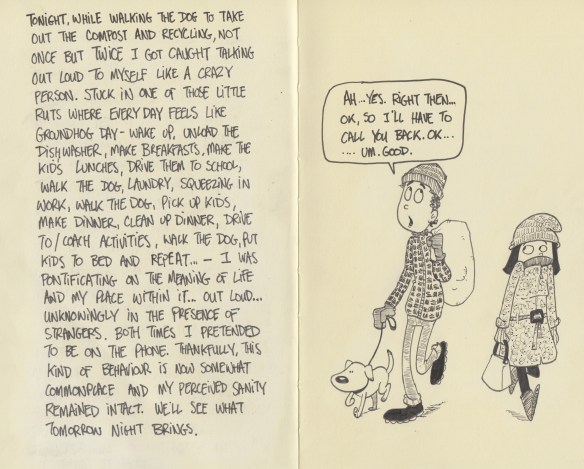 TONIGHT, WHILE WALKING THE DOG TO TAKE
OUT THE COMPOST AND RECYCLING, NOT
ONCE BUT TWICE I GOT CAUGHT TALKING
OUT LOUD TO MYSELF LIKE A CRAZY
PERSON. STUCK IN ONE OF THOSE LITTLE
RUTS WHERE EVERY DAY FEELS LIKE
GROUNDHOG DAY - WAKE UP, UNLOAD THE
DISHWASHER, MAKE BREAKFASTS, MAKE THE
KIDS LUNCHES, DRIVE THEM TO SCHOOL,
WALK THE DOG, LAUNDRY, SQUEEZING IN
WORK, WALK THE DOG, PICK UP KIDS,
MAKE DINNER, CLEAN UP DINNER, DRIVE
TO/COACH ACTIVITIES, WALK THE DOG, PUT
KIDS TO BED AND REPEAT... - I WAS
PONTIFICATING ON THE MEANING OF LIFE
AND MY PLACE WITHIN IT... OUT LOUD...
UNKNOWINGLY IN THE PRESENCE OF
STRANGERS. BOTH TIMES I PRETENDED
TO BE ON THE PHONE. THANKFULLY, THIS
KIND OF BEHAVIOUR IS NOW SOMEWHAT
COMMONPLACE AND MY PERCEIVED SANITY
REMAINED INTACT. WE'LL SEE WHAT
TOMORROW NIGHT BRINGS.
AH...YES. RIGHT THEN...
OK, SO I'LL HAVE TO
CALL YOU BACK. OK...
.... UM. GOOD.